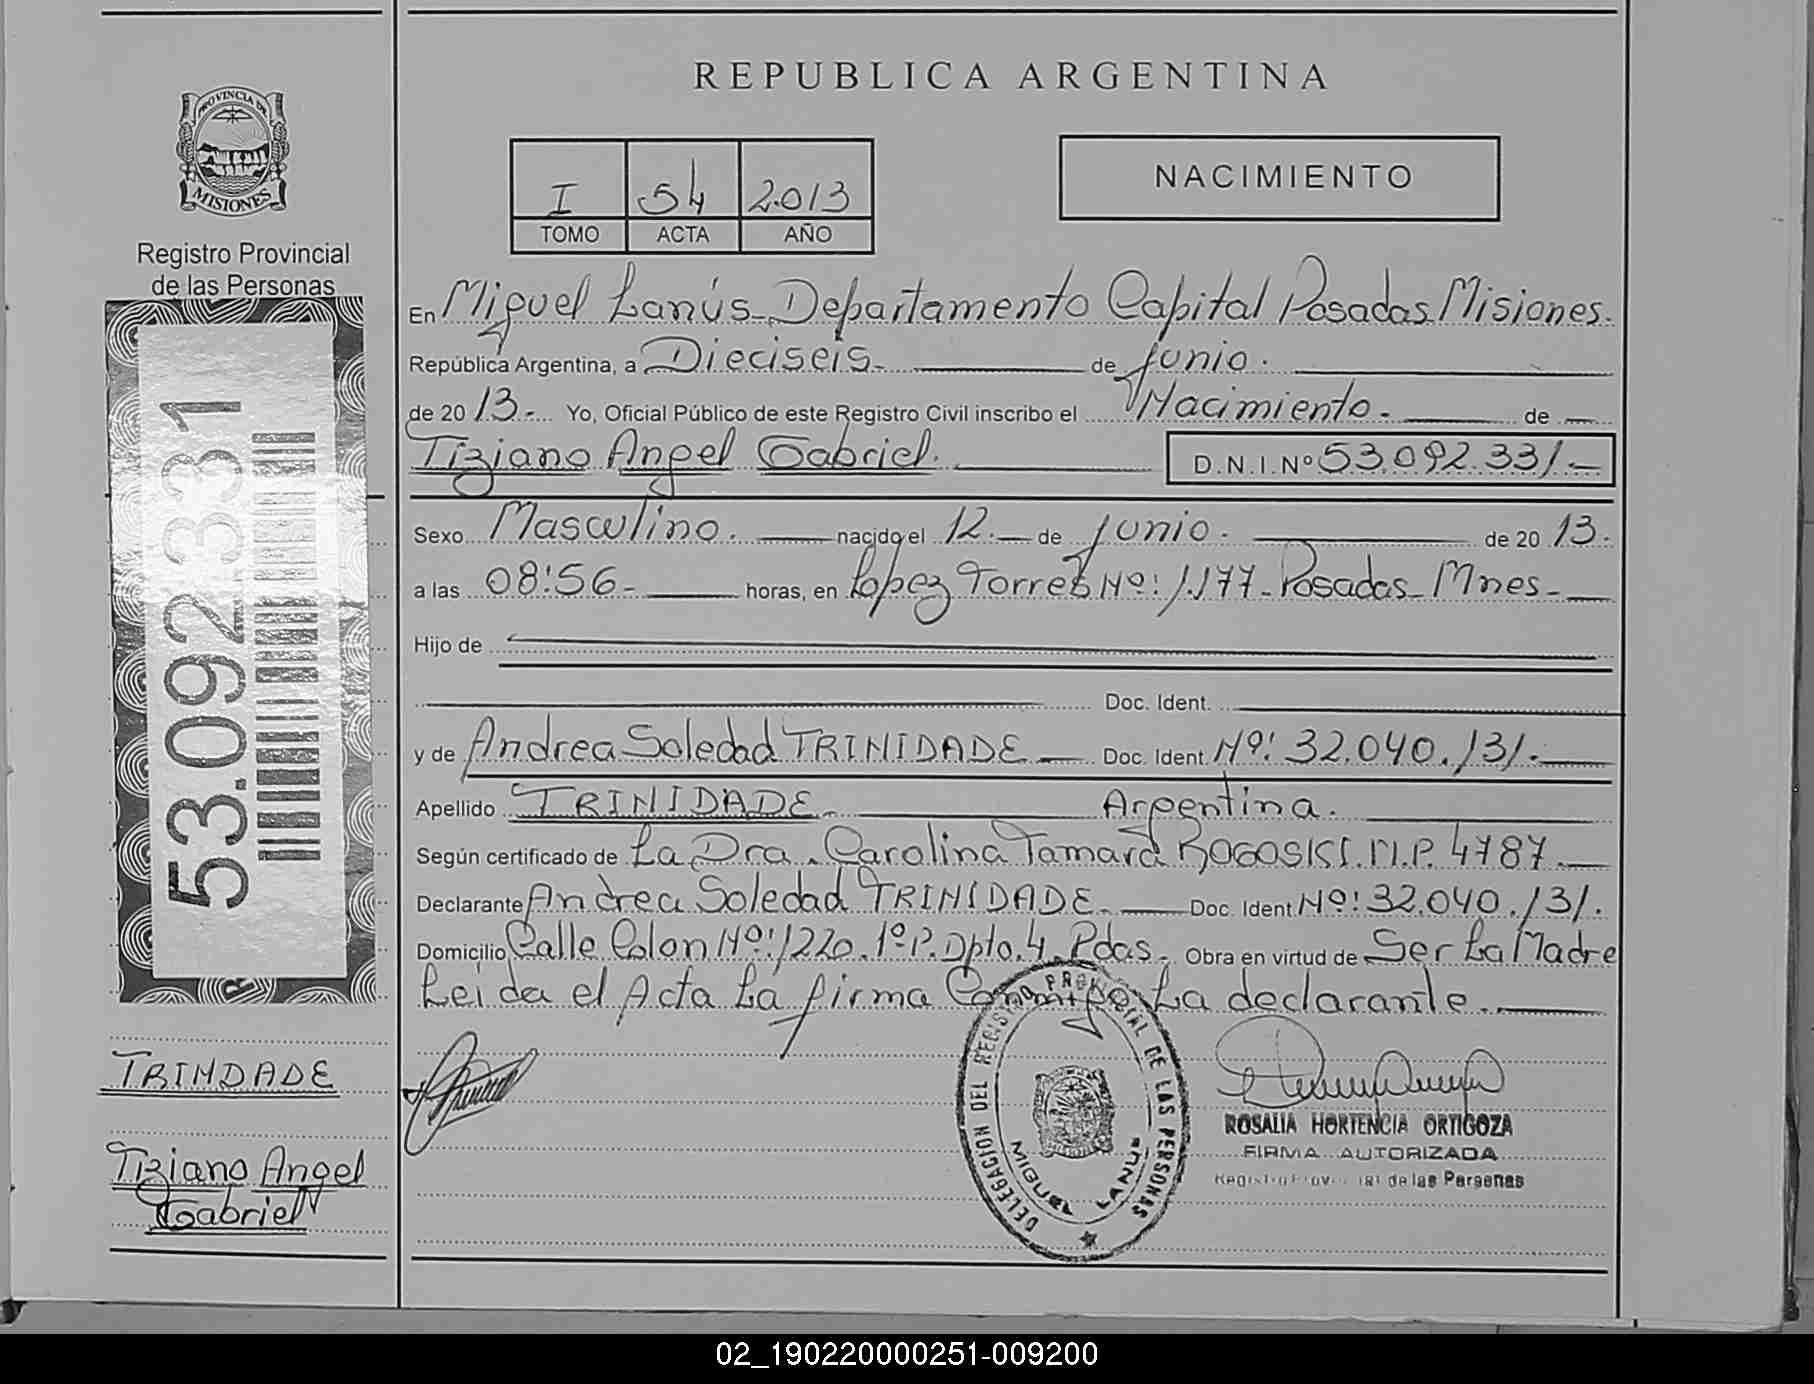 REPUBLICA ARGENTINA
PROVINCIA DE
MISIONES
Registro Provincial
de las Personas
I 54 2.013
TOMO ACTA AÑO
NACIMIENTO
En Miguel Lanús_Departamento Capital Posadas Misiones.
República Argentina, a Dieciseis. de junio.
de 20 13.- Yo, Oficial Público de este Registro Civil inscribo el Nacimiento. de
Tiziano Angel Gabriel. D.N.I.Nº 53.092.331.-
Sexo Masculino. nacido el 12. de junio. de 20 13.
a las 08:56- horas, en Lopez Torres Nº:1.177-Posadas_Mnes-
Hijo de
Doc. Ident.
y de Andrea Soledad TRINIDADE. Doc. Ident. Nº: 32.040.131.
Apellido TRINIDADE. Argentina.
Según certificado de La Dra. Carolina Tamara ROGOSKI.M.P. 4787.
Declarante Andrea Soledad TRINIDADE. Doc. Ident Nº:32.040.131.
Domicilio Calle Colon Nº:1220.1ºP.Dpto.4.Pdas. Obra en virtud de Ser La Madre
Leida el Acta La firma Conmigo La declarante.
53.092.331
TRINDADE
Tiziano Angel
Gabriel
DELEGACION DEL REGISTRO PROVINCIAL DE LAS PERSONAS
MIGUEL LANUS
ROSALIA HORTENCIA ORTIGOZA
FIRMA AUTORIZADA
de las Personas
02_190220000251-009200